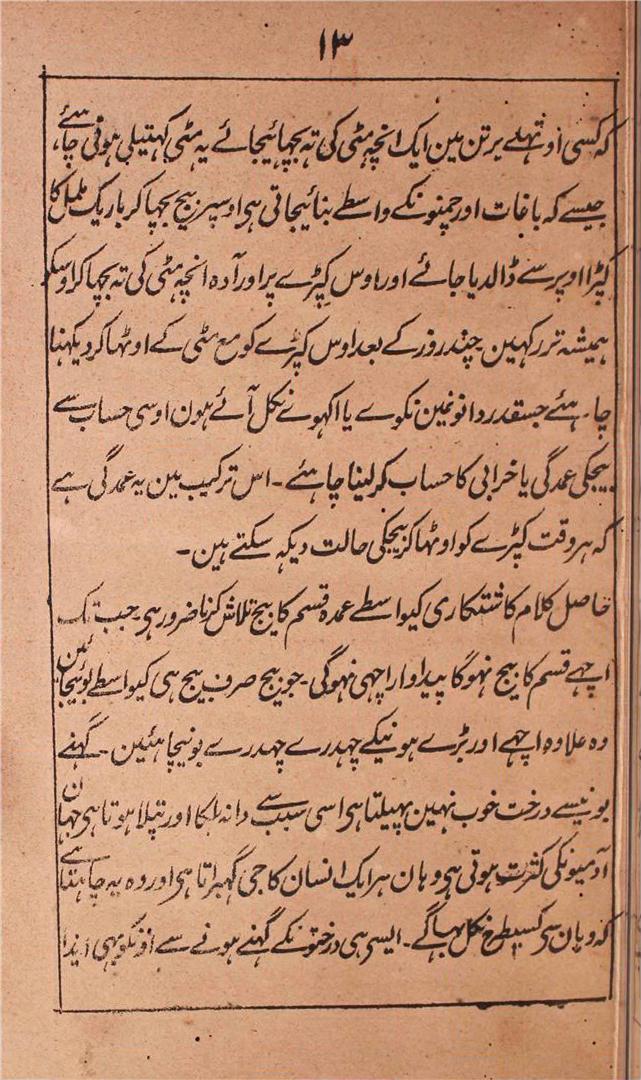 ۱۳
کہ کسی اوتھلے برتن مین ایک انچہ مٹی کی تہ بچھائیجائے یہ مٹی کہتیلی ہونی چاہئے،
جیسے کہ باغات اور چمنونکے واسطے بنائیجاتی ہی اوسپر بیج بچھا کر باریک ململ کا
کپڑا اوپر سے ڈالدیا جائے اور اوس کپڑے پر اور آدہ انچہ مٹی کی تہ بچھا کر اوسکو
ہمیشہ تر رکہین۔ چند روز کے بعد اوس کپڑے کو مع مٹی کے اوٹھا کر دیکھنا
چاہئے جسقدر دانونمین نکوے یا اکہوے نکل آئے ہون اوسی حساب سے
بیجکی عمدگی یا خرابی کا حساب کر لینا چاہئے۔ اس ترکیب مین یہ عمدگی ہے
کہ ہر وقت کپڑے کو اوٹھا کر بیجکی حالت دیکہہ سکتے ہین۔
حاصل کلام کاشتکاری کیواسطے عمدہ قسم کا بیج تلاش کرنا ضرور ہی۔ جب تک
اچھے قسم کا بیج نہوگا پیداوار اچھی نہوگی۔ جو بیج صرف بیج ہی کیواسطے بوئیجائین
وہ علاوہ اچھے اور بڑے ہونیکے چہدرے چہدرے بونیچاہئین۔ گہنے
بونیسے درخت خوب نہین پہیلتا ہی اسی سبب سے دانہ ہلکا اور پتلا ہوتا ہی جہان
آدمیونکی کثرت ہوتی ہی وہان ہر ایک انسان کا جی گہبراتا ہی اور وہ یہ چاہتا ہے
کہ وہان سی کسیطرح نکل بہاگے۔ ایسی ہی درختونکے گہنے ہونے سے اونکو بہی ایذا